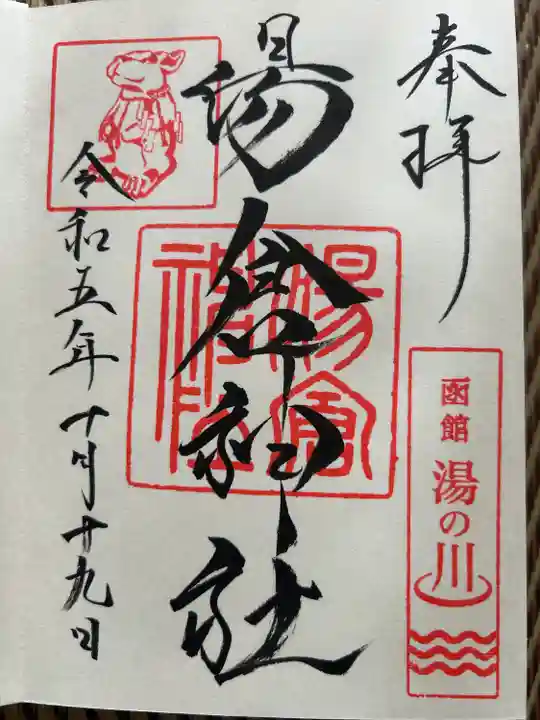 奉拝
函館 湯の川
湯倉神社
湯倉神社
令和五年十月廿九日